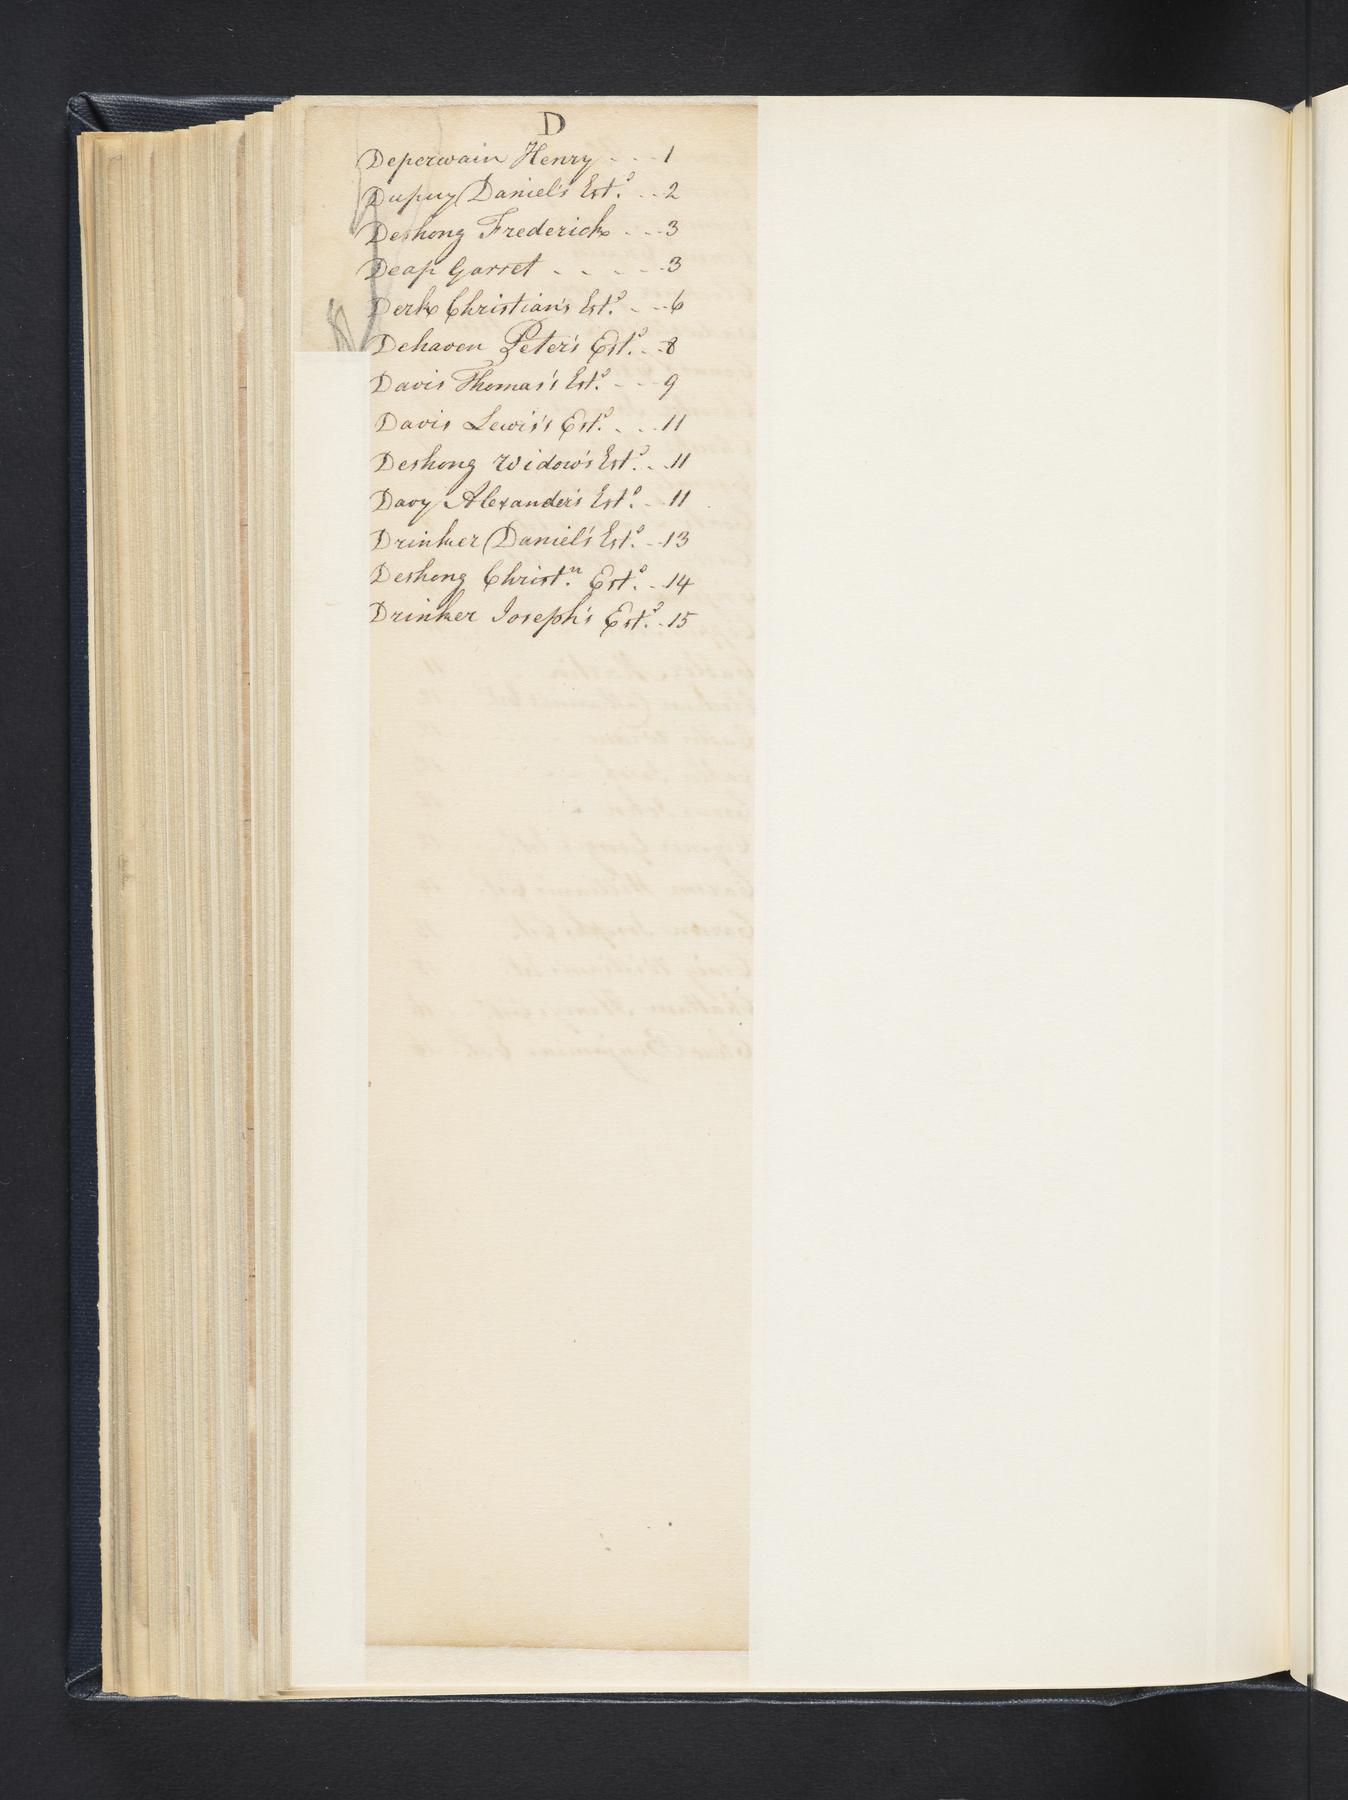 D
Deperwain Henry - - - 1
Dupuy Daniel's Est.e - - 2
Deshong Frederick - - - 3
Deap Garret - - - - - 3
Derk Christian's Est.e - - - 6
Dehaven Peter's Est.e - - 8
Davis Thomas's Est.e - - - 9
Davis Lewis's Est.e - - - 11
Deshong Widow's Est.e - - 11
Davy Alexander's Est.e - - 11
Drinker Daniel's Est.e - - 13
Deshong Christ.n Est.e - - 14
Drinker Joseph's Est.e - - 15